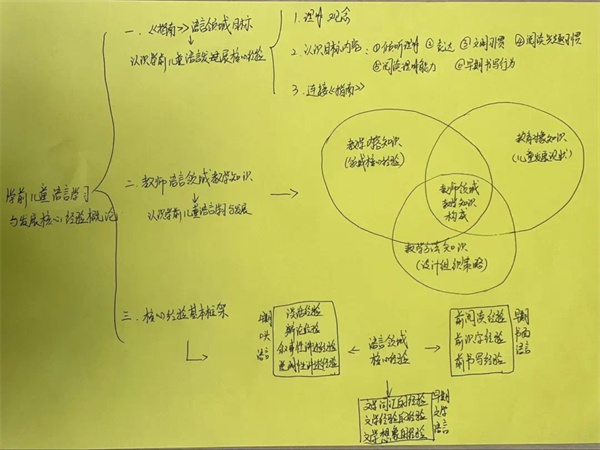 学前儿童语言学习
与发展核心经验概论
一、《指南》语言领域目标
认识学前儿童语言发展核心经验
1. 理解观念
2. 认识目标内容：①倾听理解 ②表达 ③文明习惯 ④阅读兴趣习惯
⑤阅读理解能力 ⑥早期书写行为
3. 连接《指南》
二、教师语言领域教学知识
认识学前儿童语言学习与发展
教学内容知识
(领域核心经验)
教育对象知识
(儿童发展现状)
教师领域
教学知识
构成
教学方法知识
(设计组织策略)
三、核心经验基本框架
早期
口头
语言
谈话经验
辩论经验
叙事性讲述经验
说明性讲述经验
语言领域
核心经验
前阅读经验
前识字经验
前书写经验
早期
书面
语言
文学词汇的经验
文学经验的经验
文学想象的经验
早期
文学
语言